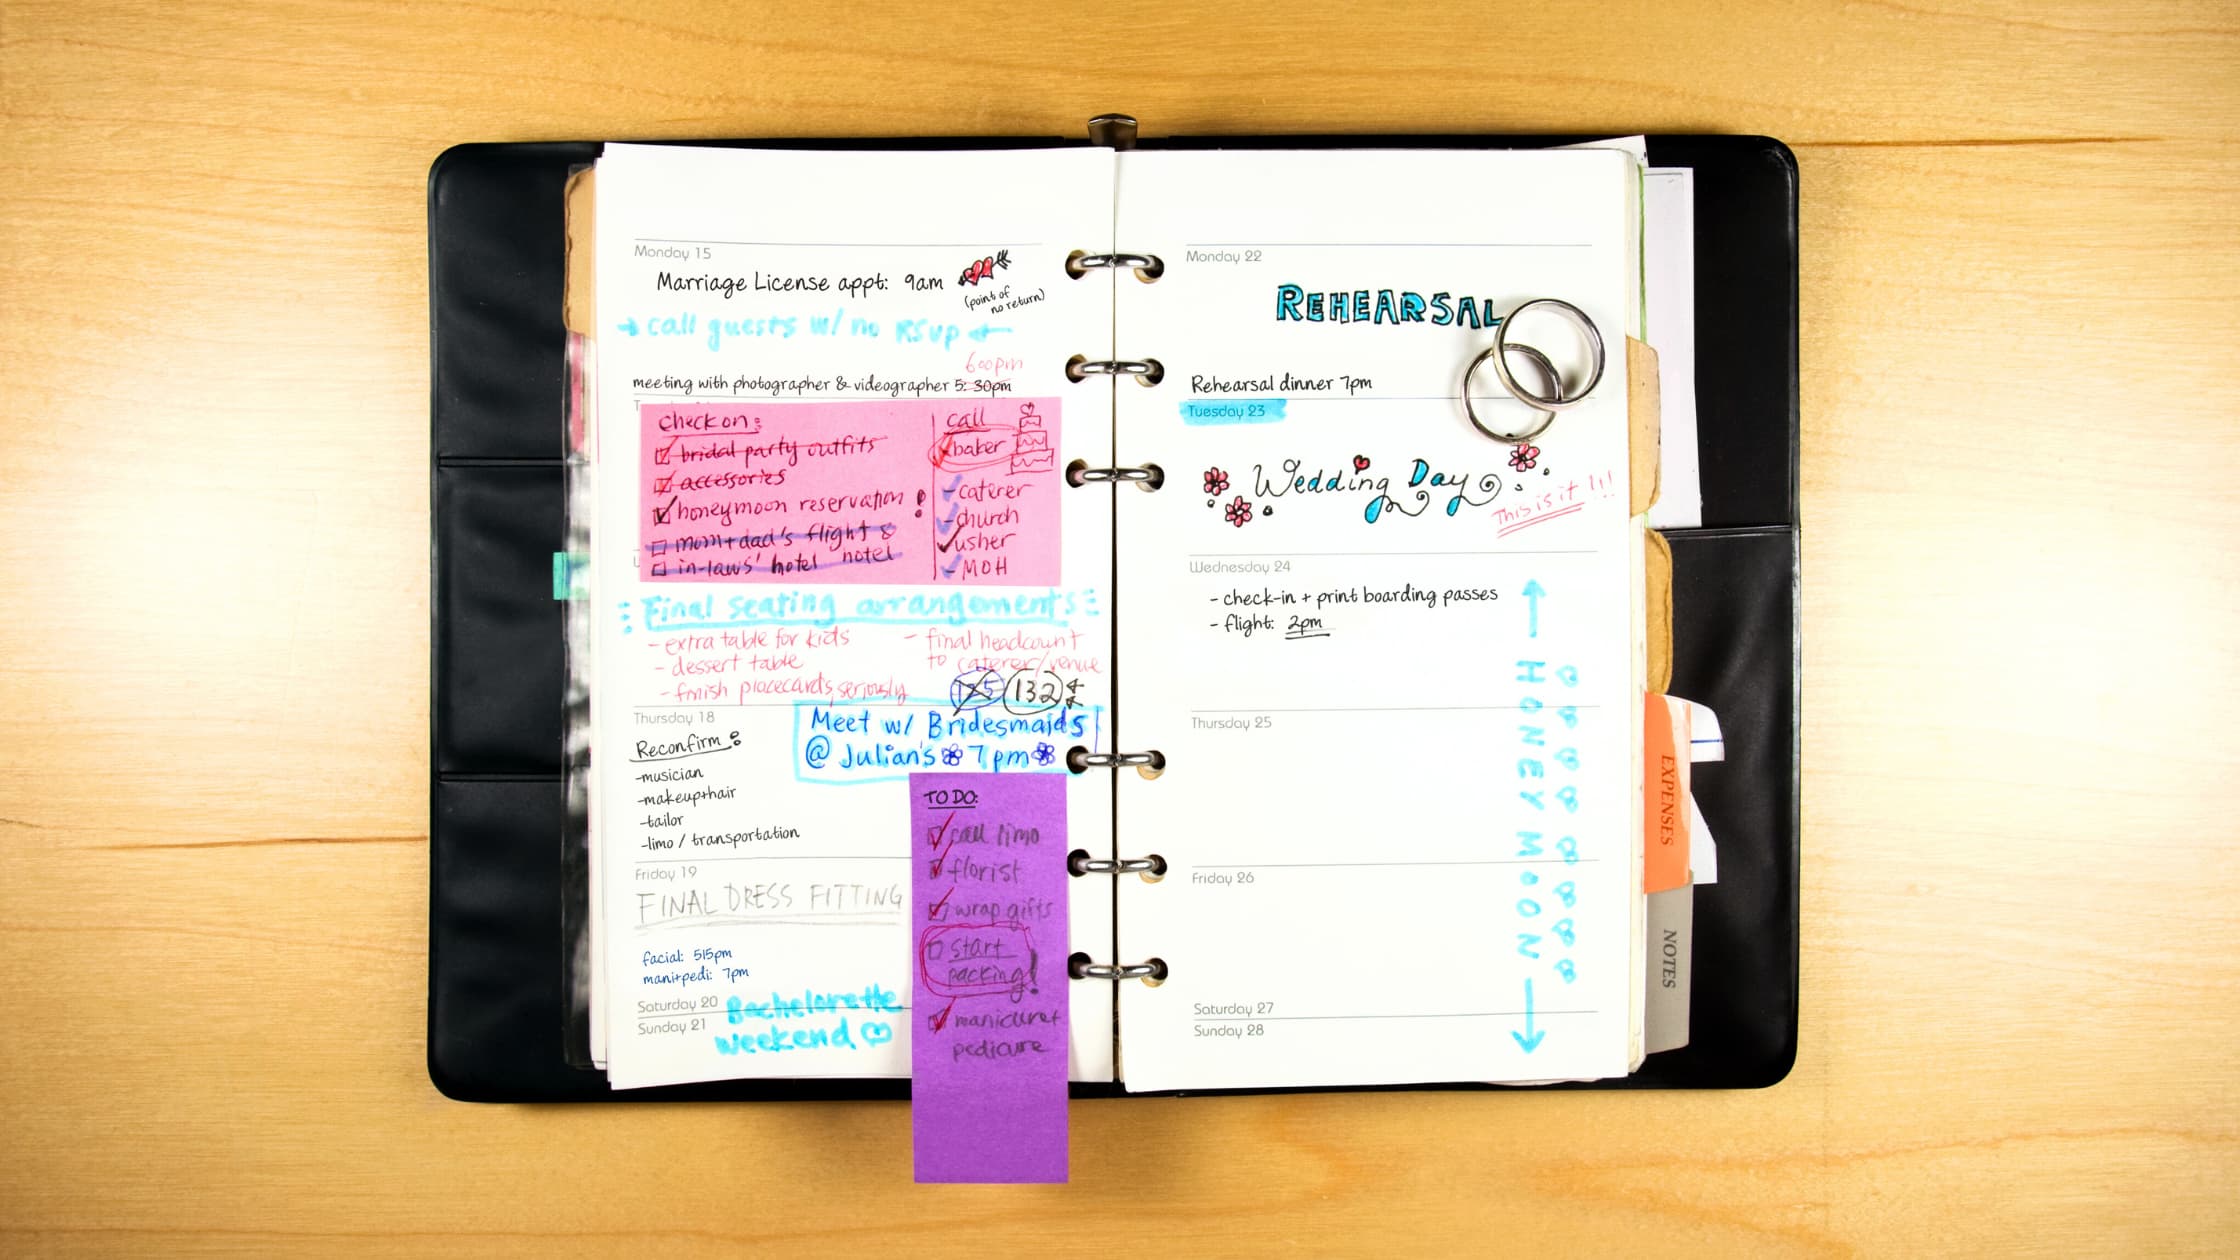 Monday 15
Marriage License appt: 9am
(point of
no return)
→ call guests w/ no RSVP ←
600pm
meeting with photographer & videographer 5:30pm
T
check on:
bridal party outfits
accessories
honeymoon reservation !
mom + dad's flight &
in-laws' hotel hotel
call
baker
- caterer
- church
usher
- MOH
Final seating arrangements
- extra table for kids
- dessert table
- finish placecards, seriously
- final headcount
to caterer/venue
125 132
Thursday 18
Reconfirm:
-musician
-makeup+hair
-tailor
-limo / transportation
Meet w/ Bridesmaids
@ Julian's 7pm
Friday 19
FINAL DRESS FITTING
facial: 515pm
mani+pedi: 7pm
Saturday 20
Sunday 21
Bachelorette
weekend
TO DO:
call limo
florist
wrap gifts
start
packing!
manicure+
pedicure
Monday 22
REHEARSAL
Rehearsal dinner 7pm
Tuesday 23
Wedding Day
This is it !!!
Wednesday 24
- check-in + print boarding passes
- flight: 2pm
HONEYMOON
Thursday 25
Friday 26
Saturday 27
Sunday 28
EXPENSES
NOTES